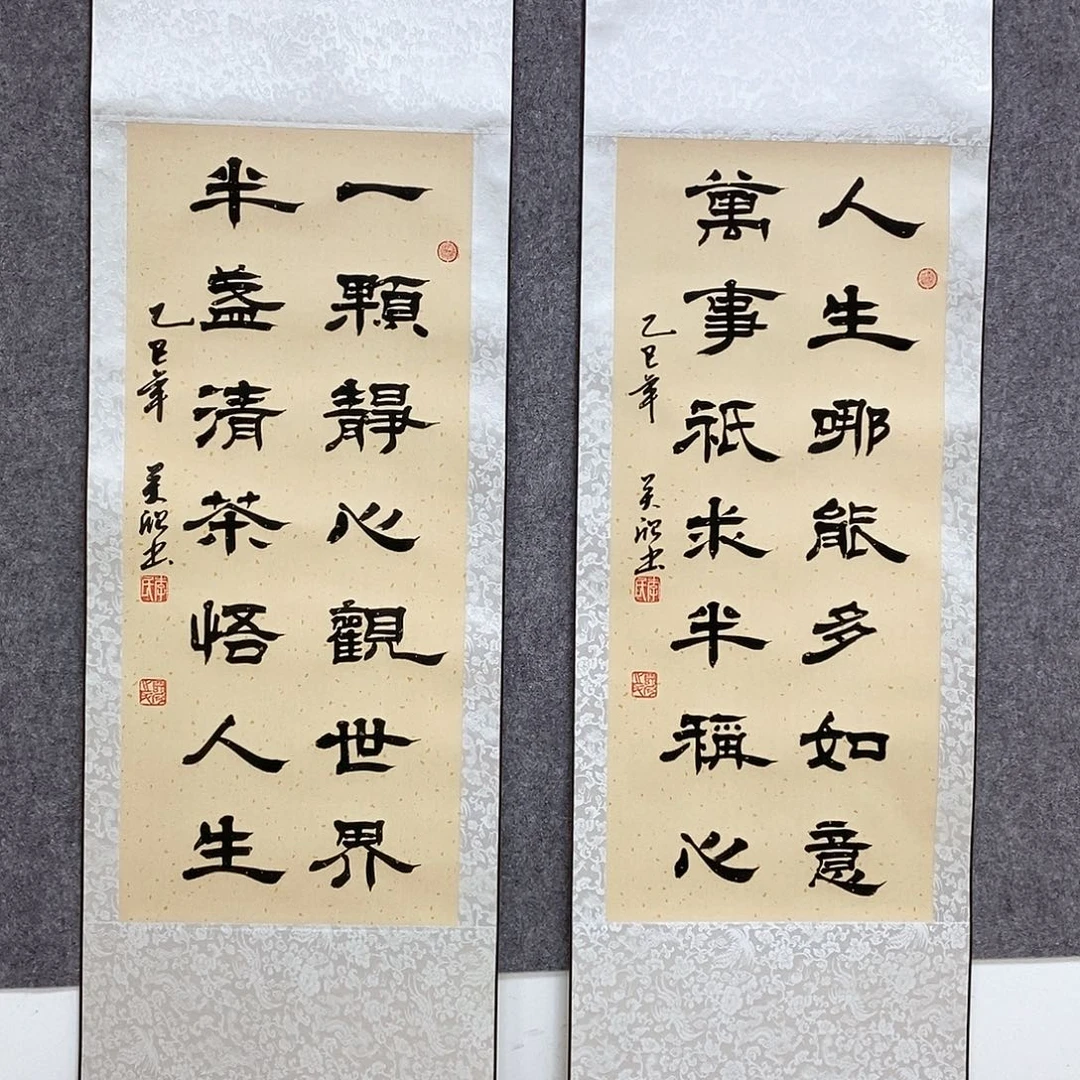 人生哪能多如意
萬事祇求半稱心
乙巳年 书
一顆靜心觀世界
半盞清茶悟人生
乙巳年 书